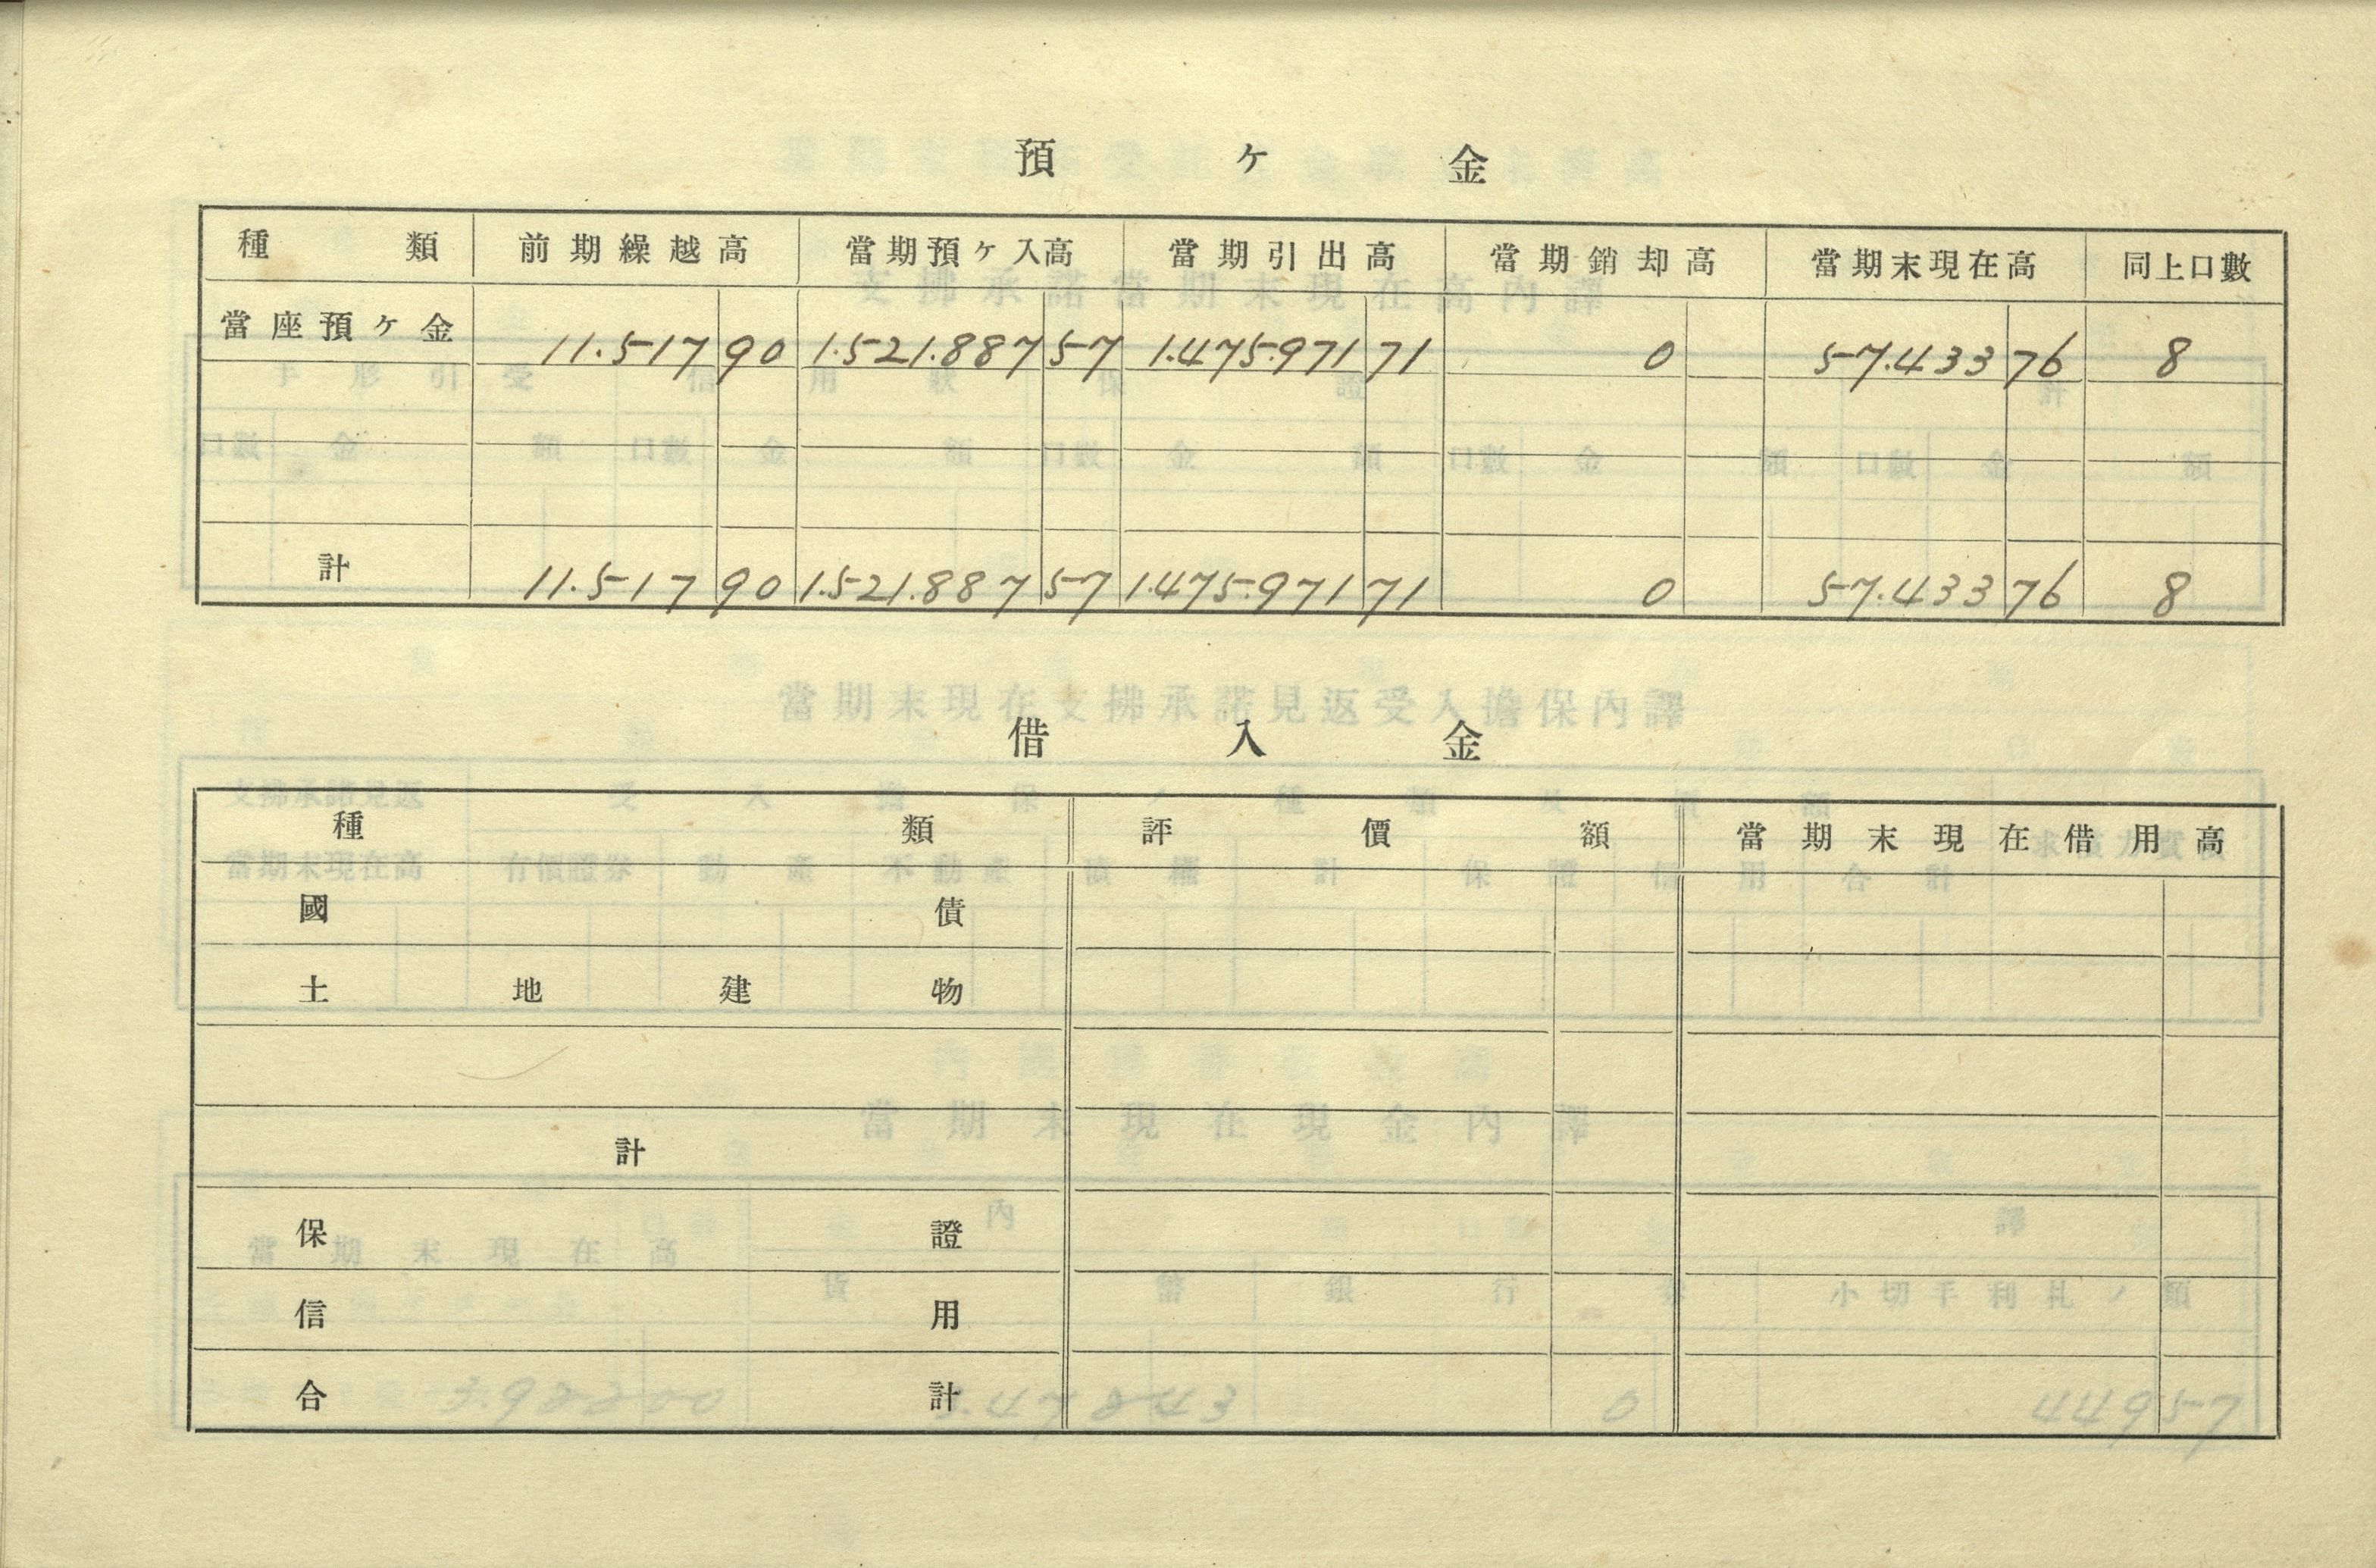 預ヶ金
種類 前期繰越高 當期預ヶ入高 當期引出高 當期銷却高 當期末現在高 同上口數
當座預ヶ金 11.517 90 1.521.887 57 1.475.971 71 0 57.433 76 8
計 11.517 90 1.521.887 57 1.475.971 71 0 57.433 76 8
借入金
種類 評價額 當期末現在借用高
國債
土地建物
計
保證
信用
合計